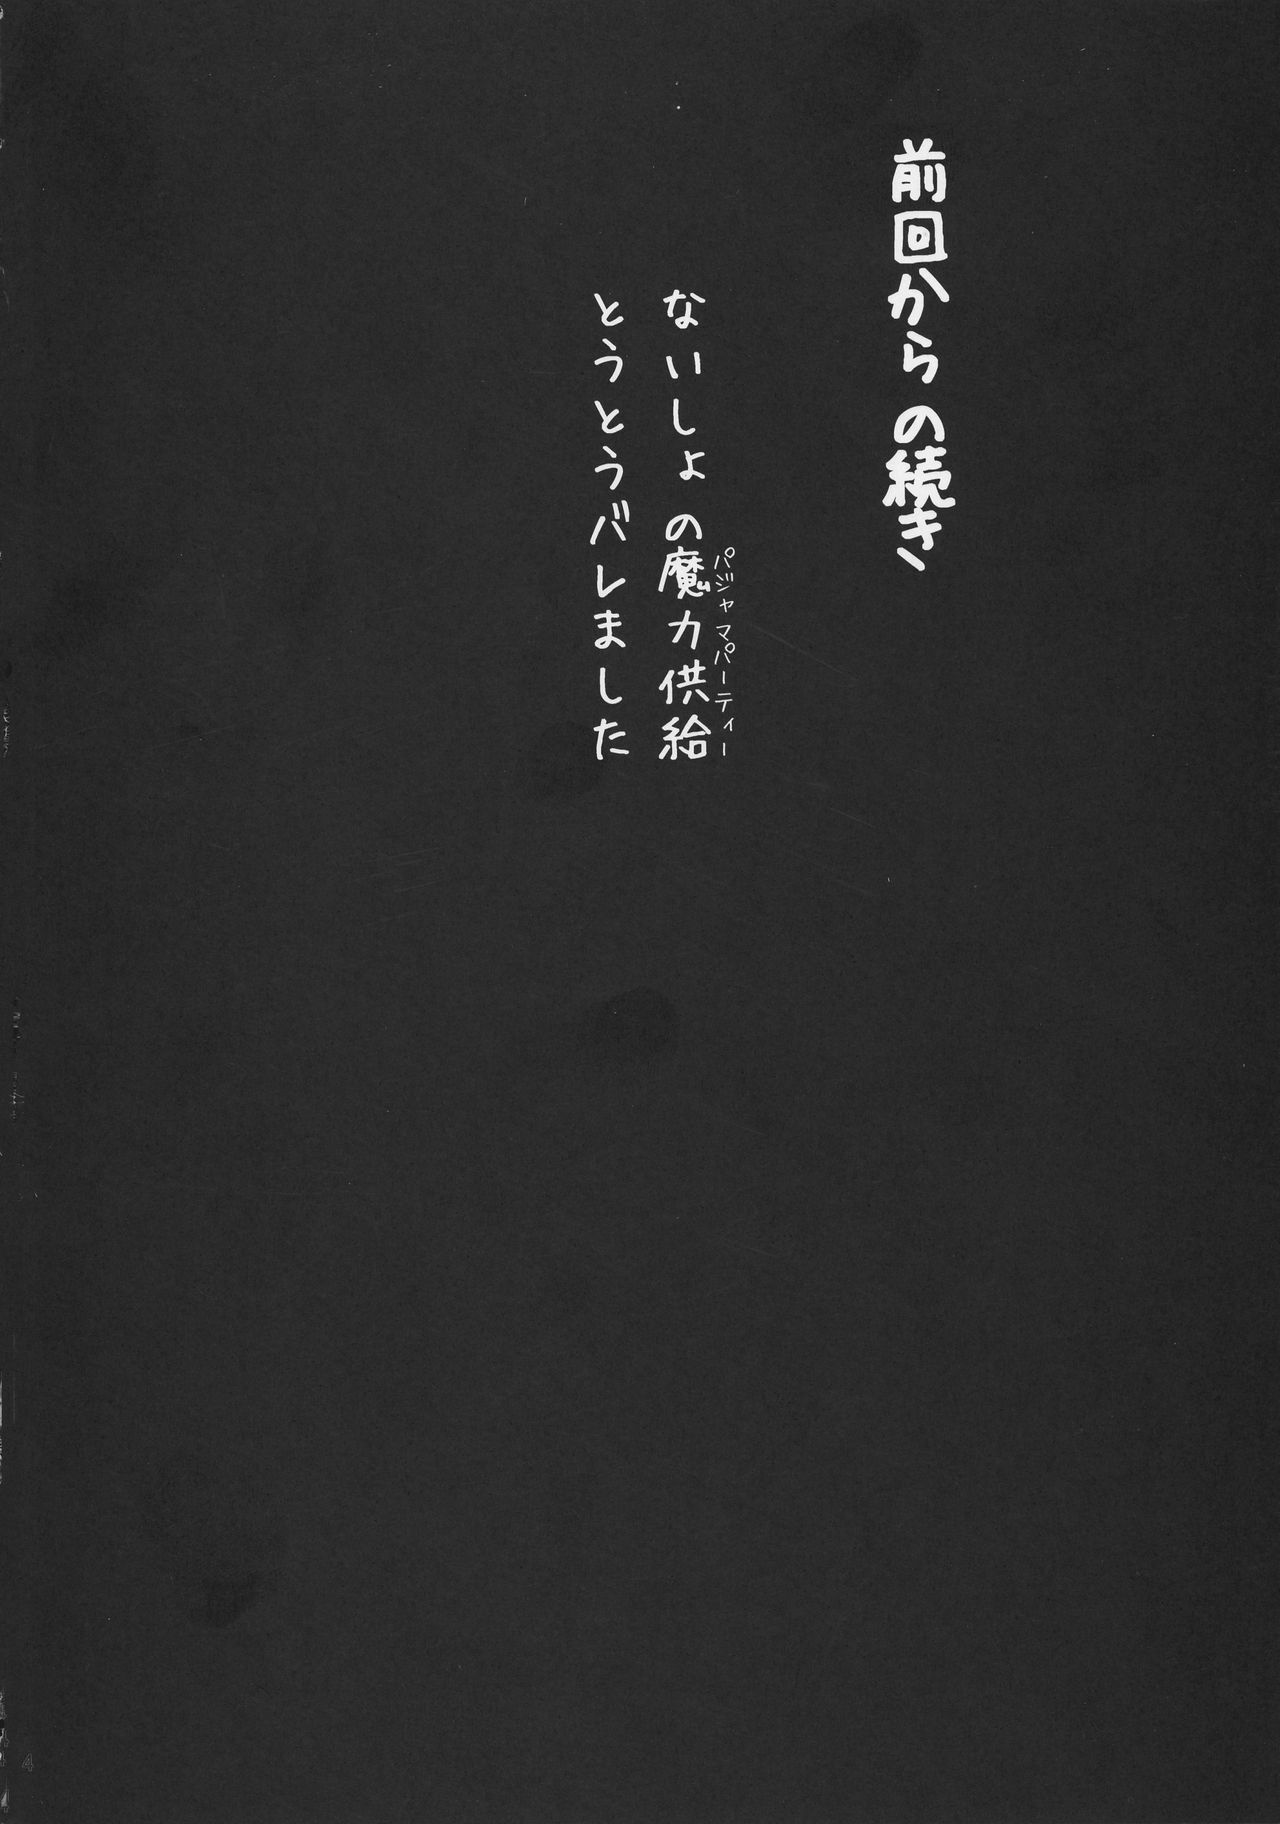 前回からの続き
ないしょの魔力供給
パジャマパーティー
とうとうバレました
4